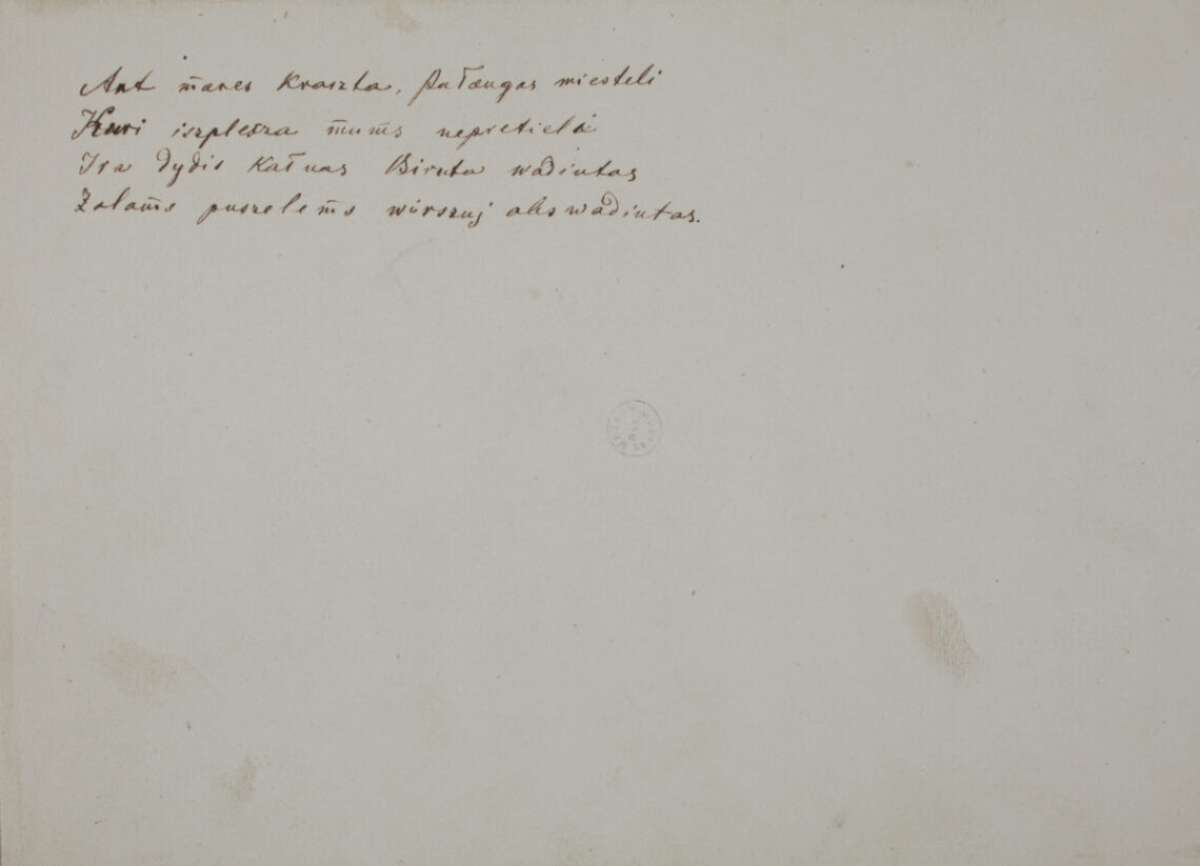 Ant m̄ares Kraszta, Pałaugas miesteli
Kuri iszplesza m̄um̄s nepretiela
Ira dydis Kałnas Biruta wadintas
Zalam̄s puszelem̄s wirszuj abswadintas.